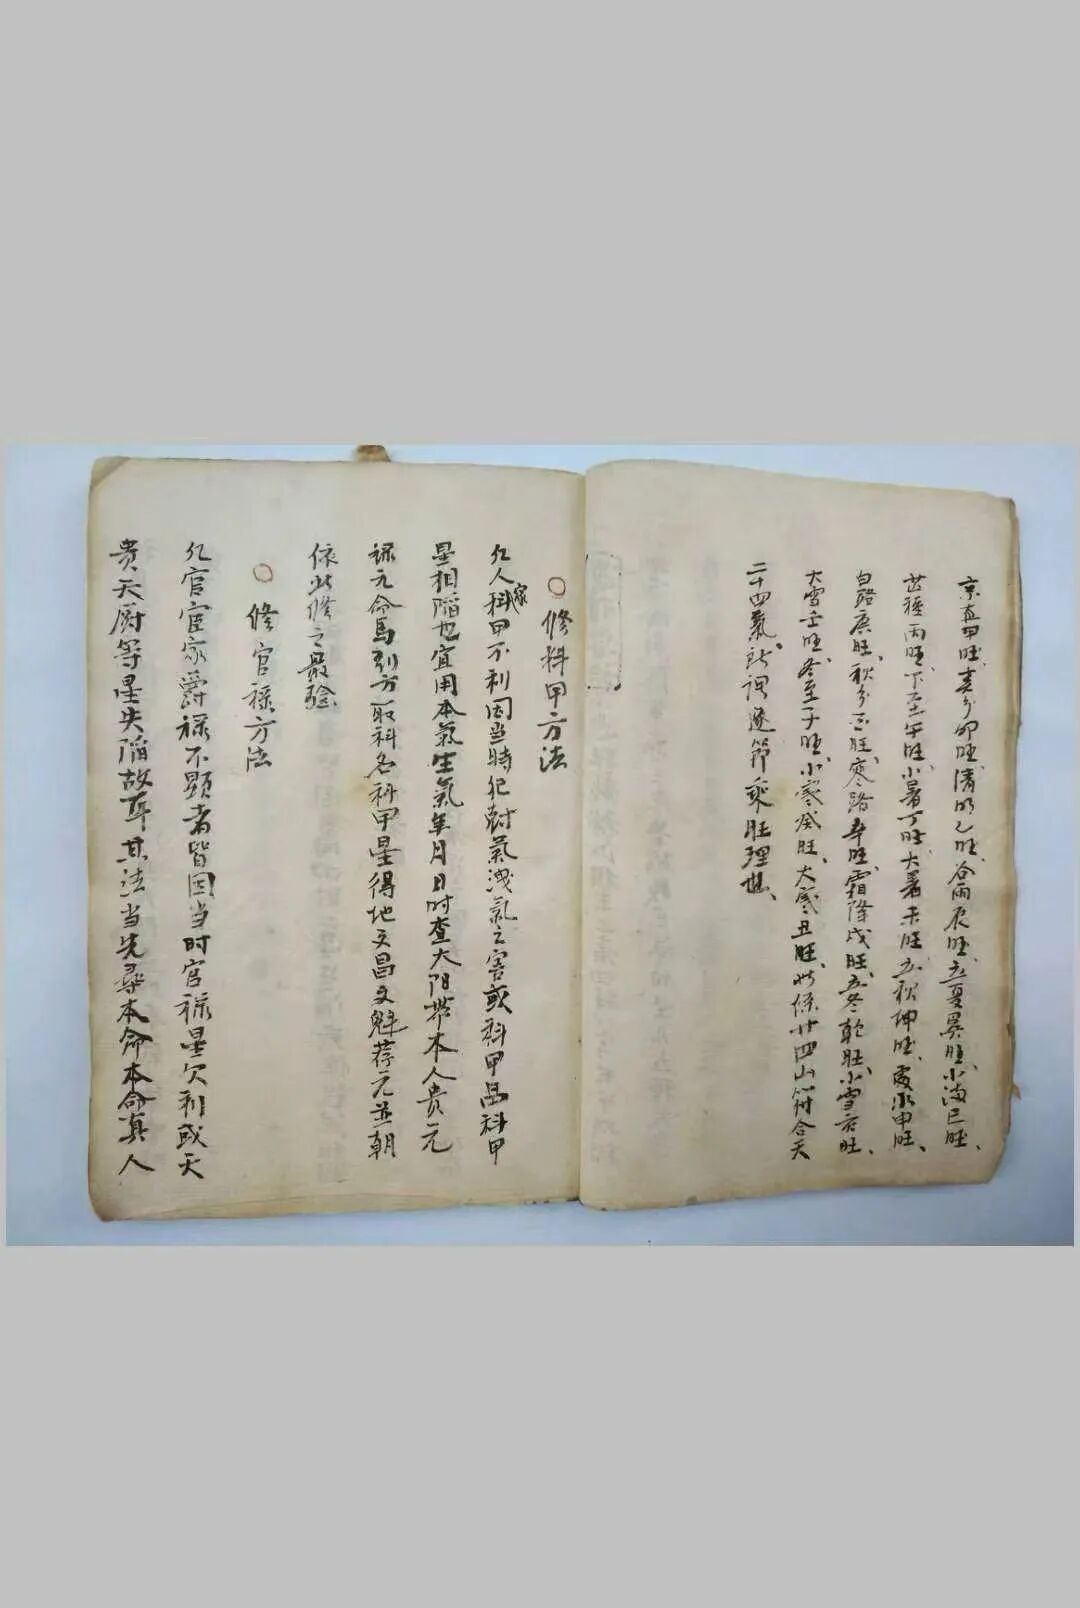 京直甲旺、春分卯旺、清明乙旺、谷雨辰旺、立夏巽旺、小满巳旺、
芒種丙旺、下至午旺、小暑丁旺、大暑未旺、立秋坤旺、處水申旺、
白路庚旺、秋分酉旺、寒路辛旺、霜降戌旺、立冬乾旺、小雪亥旺、
大雪壬旺、冬至子旺、小寒癸旺、大寒丑旺、此係廿四山符合天
二十四氣、所謂逐節乘旺理也、
○修科甲方法
凡人家科甲不利因当時犯尅氣洩氣之害或科甲品科甲
星相陷也宜用本氣生氣年月日时查太阳帶本人贵元
禄元命馬到方取科名科甲星得地文昌文魁荐元並朝
依此修之最验
○修官禄方法
凡官宦家爵禄不顯者皆因当时官禄星欠利或天
贵天厨等星失陷故耳其法当先尋本命本命真人